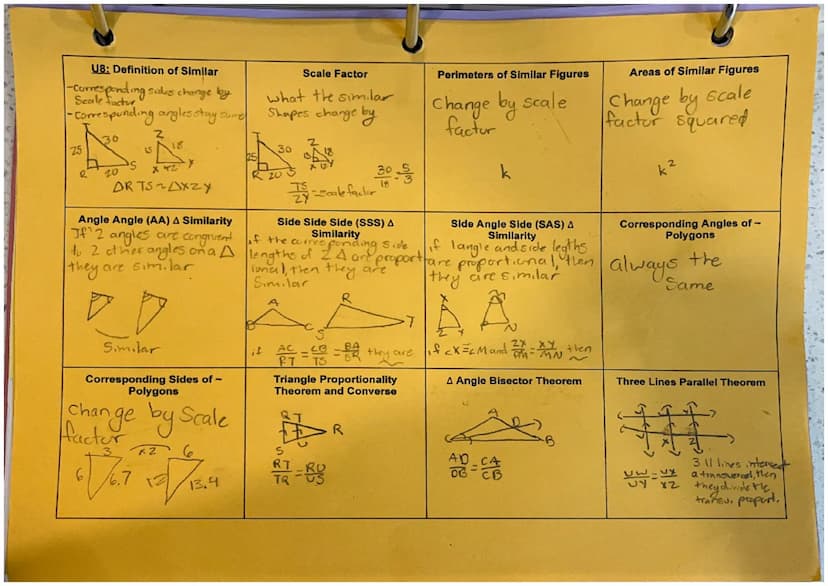 U8: Definition of Similar
-Corresponding sides change by
Scale factor
-Corresponding angles stay same
T
25
30
R
20
S
Z
15
18
X
12
Y
△RTS~△XZY
Scale Factor
what the similar
Shapes change by
T
25
30
R
20
S
Z
15
18
X
12
Y
30/18=5/3
TS/ZY=scale factor
Perimeters of Similar Figures
Change by scale
factor
k
Areas of Similar Figures
Change by scale
factor squared
k²
Angle Angle (AA) Δ Similarity
If 2 angles are congruent
to 2 other angles on a △
they are similar
Similar
Side Side Side (SSS) Δ
Similarity
if the corresponding side
lengths of 2 △ are proport
ional, then they are
Similar
A
B
C
R
S
T
if AC/RT=CB/TS=BA/SR they are ~
Side Angle Side (SAS) Δ
Similarity
if 1 angle and side legths
are proportional, then
they are similar
X
Z
Y
M
N
if <X≅<M and ZX/OM=XY/MN then ~
Corresponding Angles of ~
Polygons
always the
Same
Corresponding Sides of ~
Polygons
Change by Scale
factor
3
x2
6
6
6.7
12
13.4
Triangle Proportionality
Theorem and Converse
R
T
R
S
U
RT/TQ=RU/US
Δ Angle Bisector Theorem
A
D
C
B
AD/DB=CA/CB
Three Lines Parallel Theorem
X
Z
UW/UY=VX/XZ
3 || lines intersect
a transversal, then
they divide the
transv. proport.